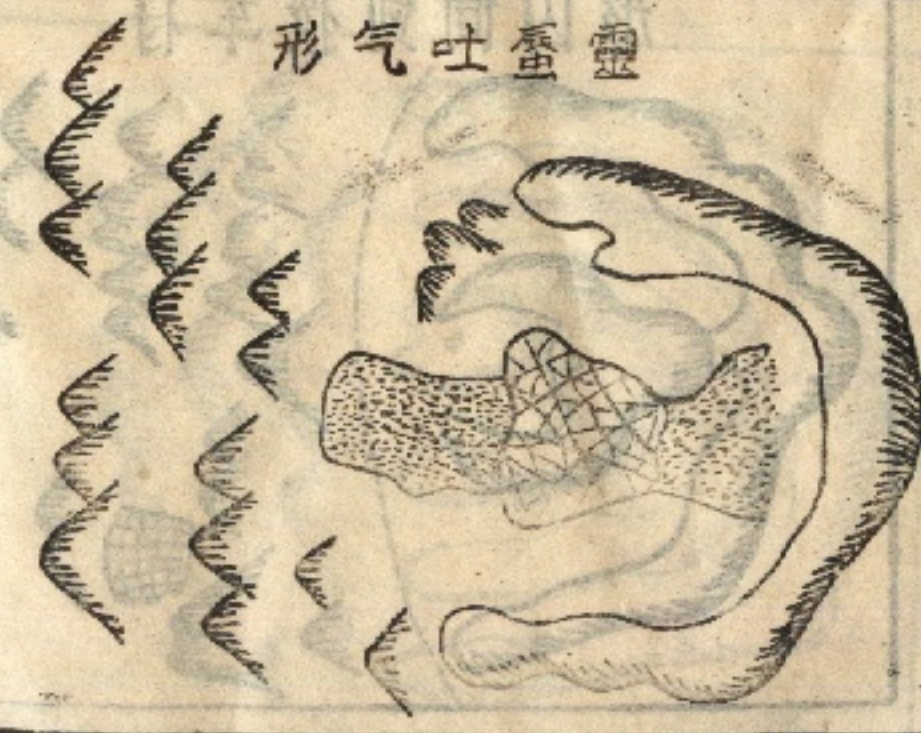 靈蜃吐气形